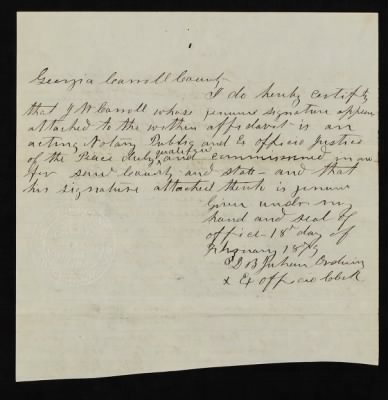 Georgia Carroll County
I do hereby certify
that J W Carroll whose genuine signature appears
attached to the within affidavit is an
acting Notary Public and Ex officio Justice
of the Peace duly qualified and commissioned in and
for said County and state and that
his signature attached thereto is genuine
Given under my
hand and seal of
office 18th day of
February 1879
D B Juhan, Ordinary
& Ex officio Clerk